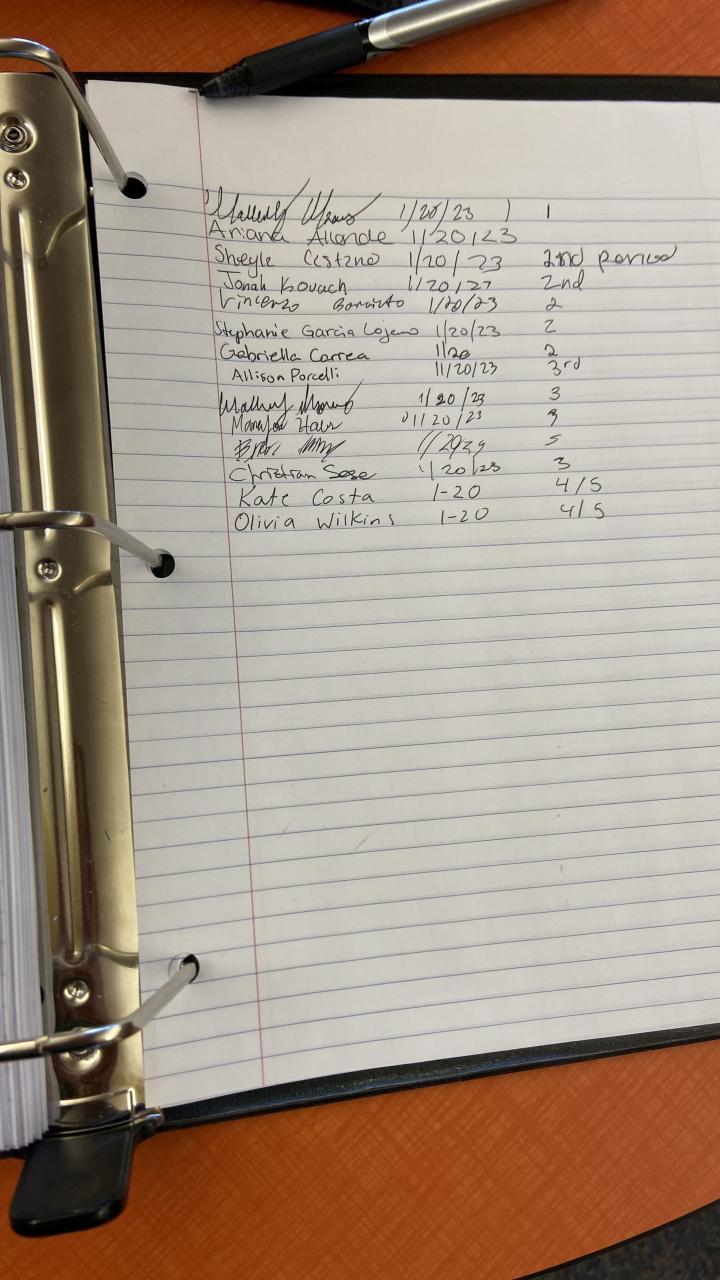 1/20/23 1
Ariana Allende 1/20/23
Sheyle 1/20/23 2nd period
Jonah Kovach 1/20/27 2nd
Vincenzo 1/20/23 2
Stephanie Garcia Lojano 1/20/23 2
Gabriella Correa 1/20 2
Allison Porcelli 11/20/23 3rd
1/20/23 3
1/20/23 3
5
Christian Sose 1/20/23 3
Kate Costa 1-20 4/5
Olivia Wilkins 1-20 4/5